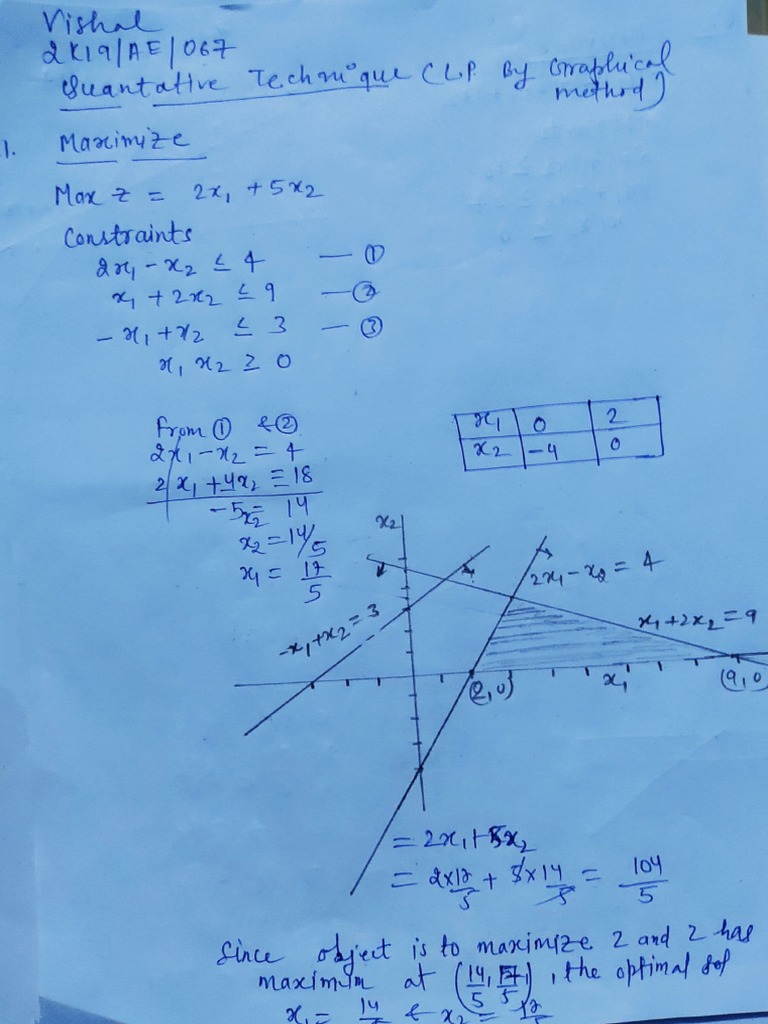 Vishal
2K19/AE/067
Quantative Technique (L.P. By Graphical method)
1. Maximize
Max z = 2x₁ + 5x₂
Constraints
2x₁ - x₂ ≤ 4 — ①
x₁ + 2x₂ ≤ 9 — ②
- x₁ + x₂ ≤ 3 — ③
x₁ x₂ ≥ 0
From ① & ②
2x₁ - x₂ = 4
2 x₁ + 4x₂ = 18
-5x₂ = 14
x₂ = 14/5
x₁ = 17/5
x₁ 0 2
x₂ -4 0
x₂
2x₁ - x₂ = 4
-x₁ + x₂ = 3
x₁ + 2x₂ = 9
(2,0)
x₁
(9,0)
= 2x₁ + 5x₂
= 2×17/5 + 5×14/5 = 104/5
Since object is to maximize z and z has
maximum at (14/5, 17/5), the optimal sol
x₁ = 14 & x₂ = 17